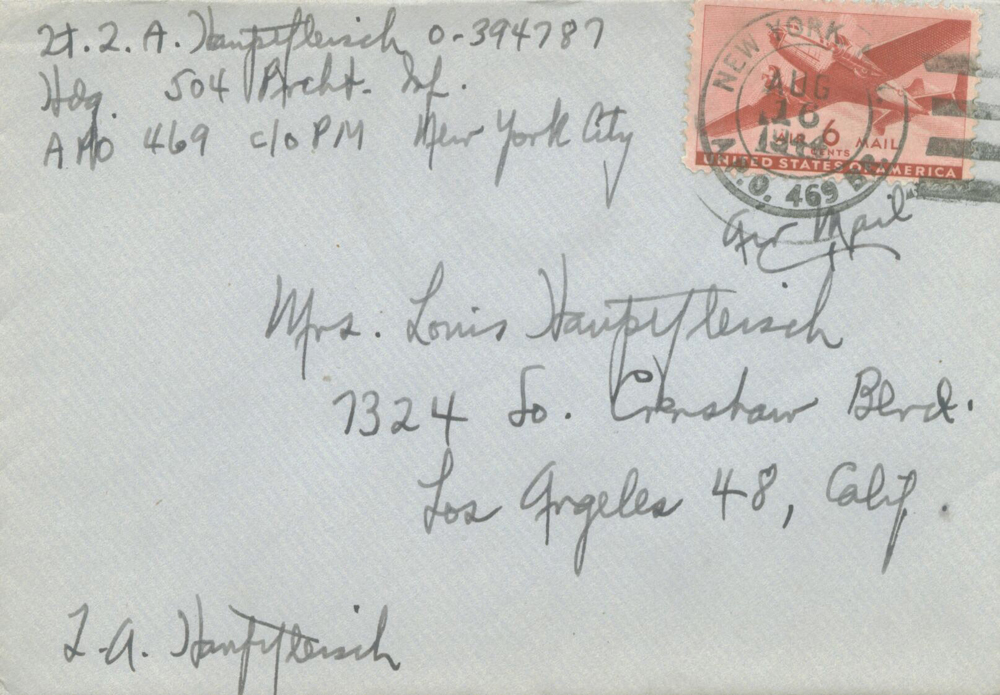 Lt. L. A. Hauptfleisch O-394787
Hdq. 504 Prcht. Inf.
APO 469 c/o PM New York City
NEW YORK
AUG
16
1944
A.P.O. 469
AIR 6 MAIL
CENTS
UNITED STATES OF AMERICA
Air Mail
Mrs. Louis Hauptfleisch
7324 So. Crenshaw Blvd.
Los Angeles 48, Calif.
L. A. Hauptfleisch